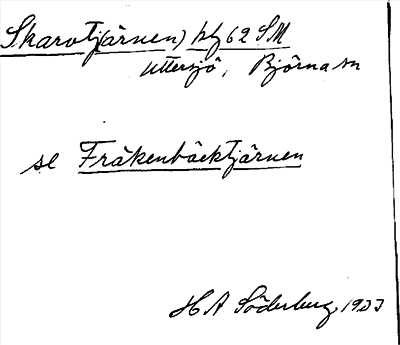 Skarvtj(ärnen) hlg 62 SM
Uttersjö, Björna sn
se Fräkenbäcktjärnen
H A Söderberg, 1933